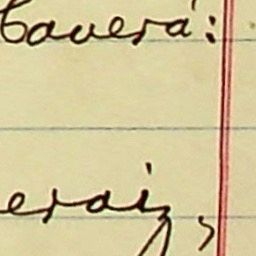 bavera:
eraiz,